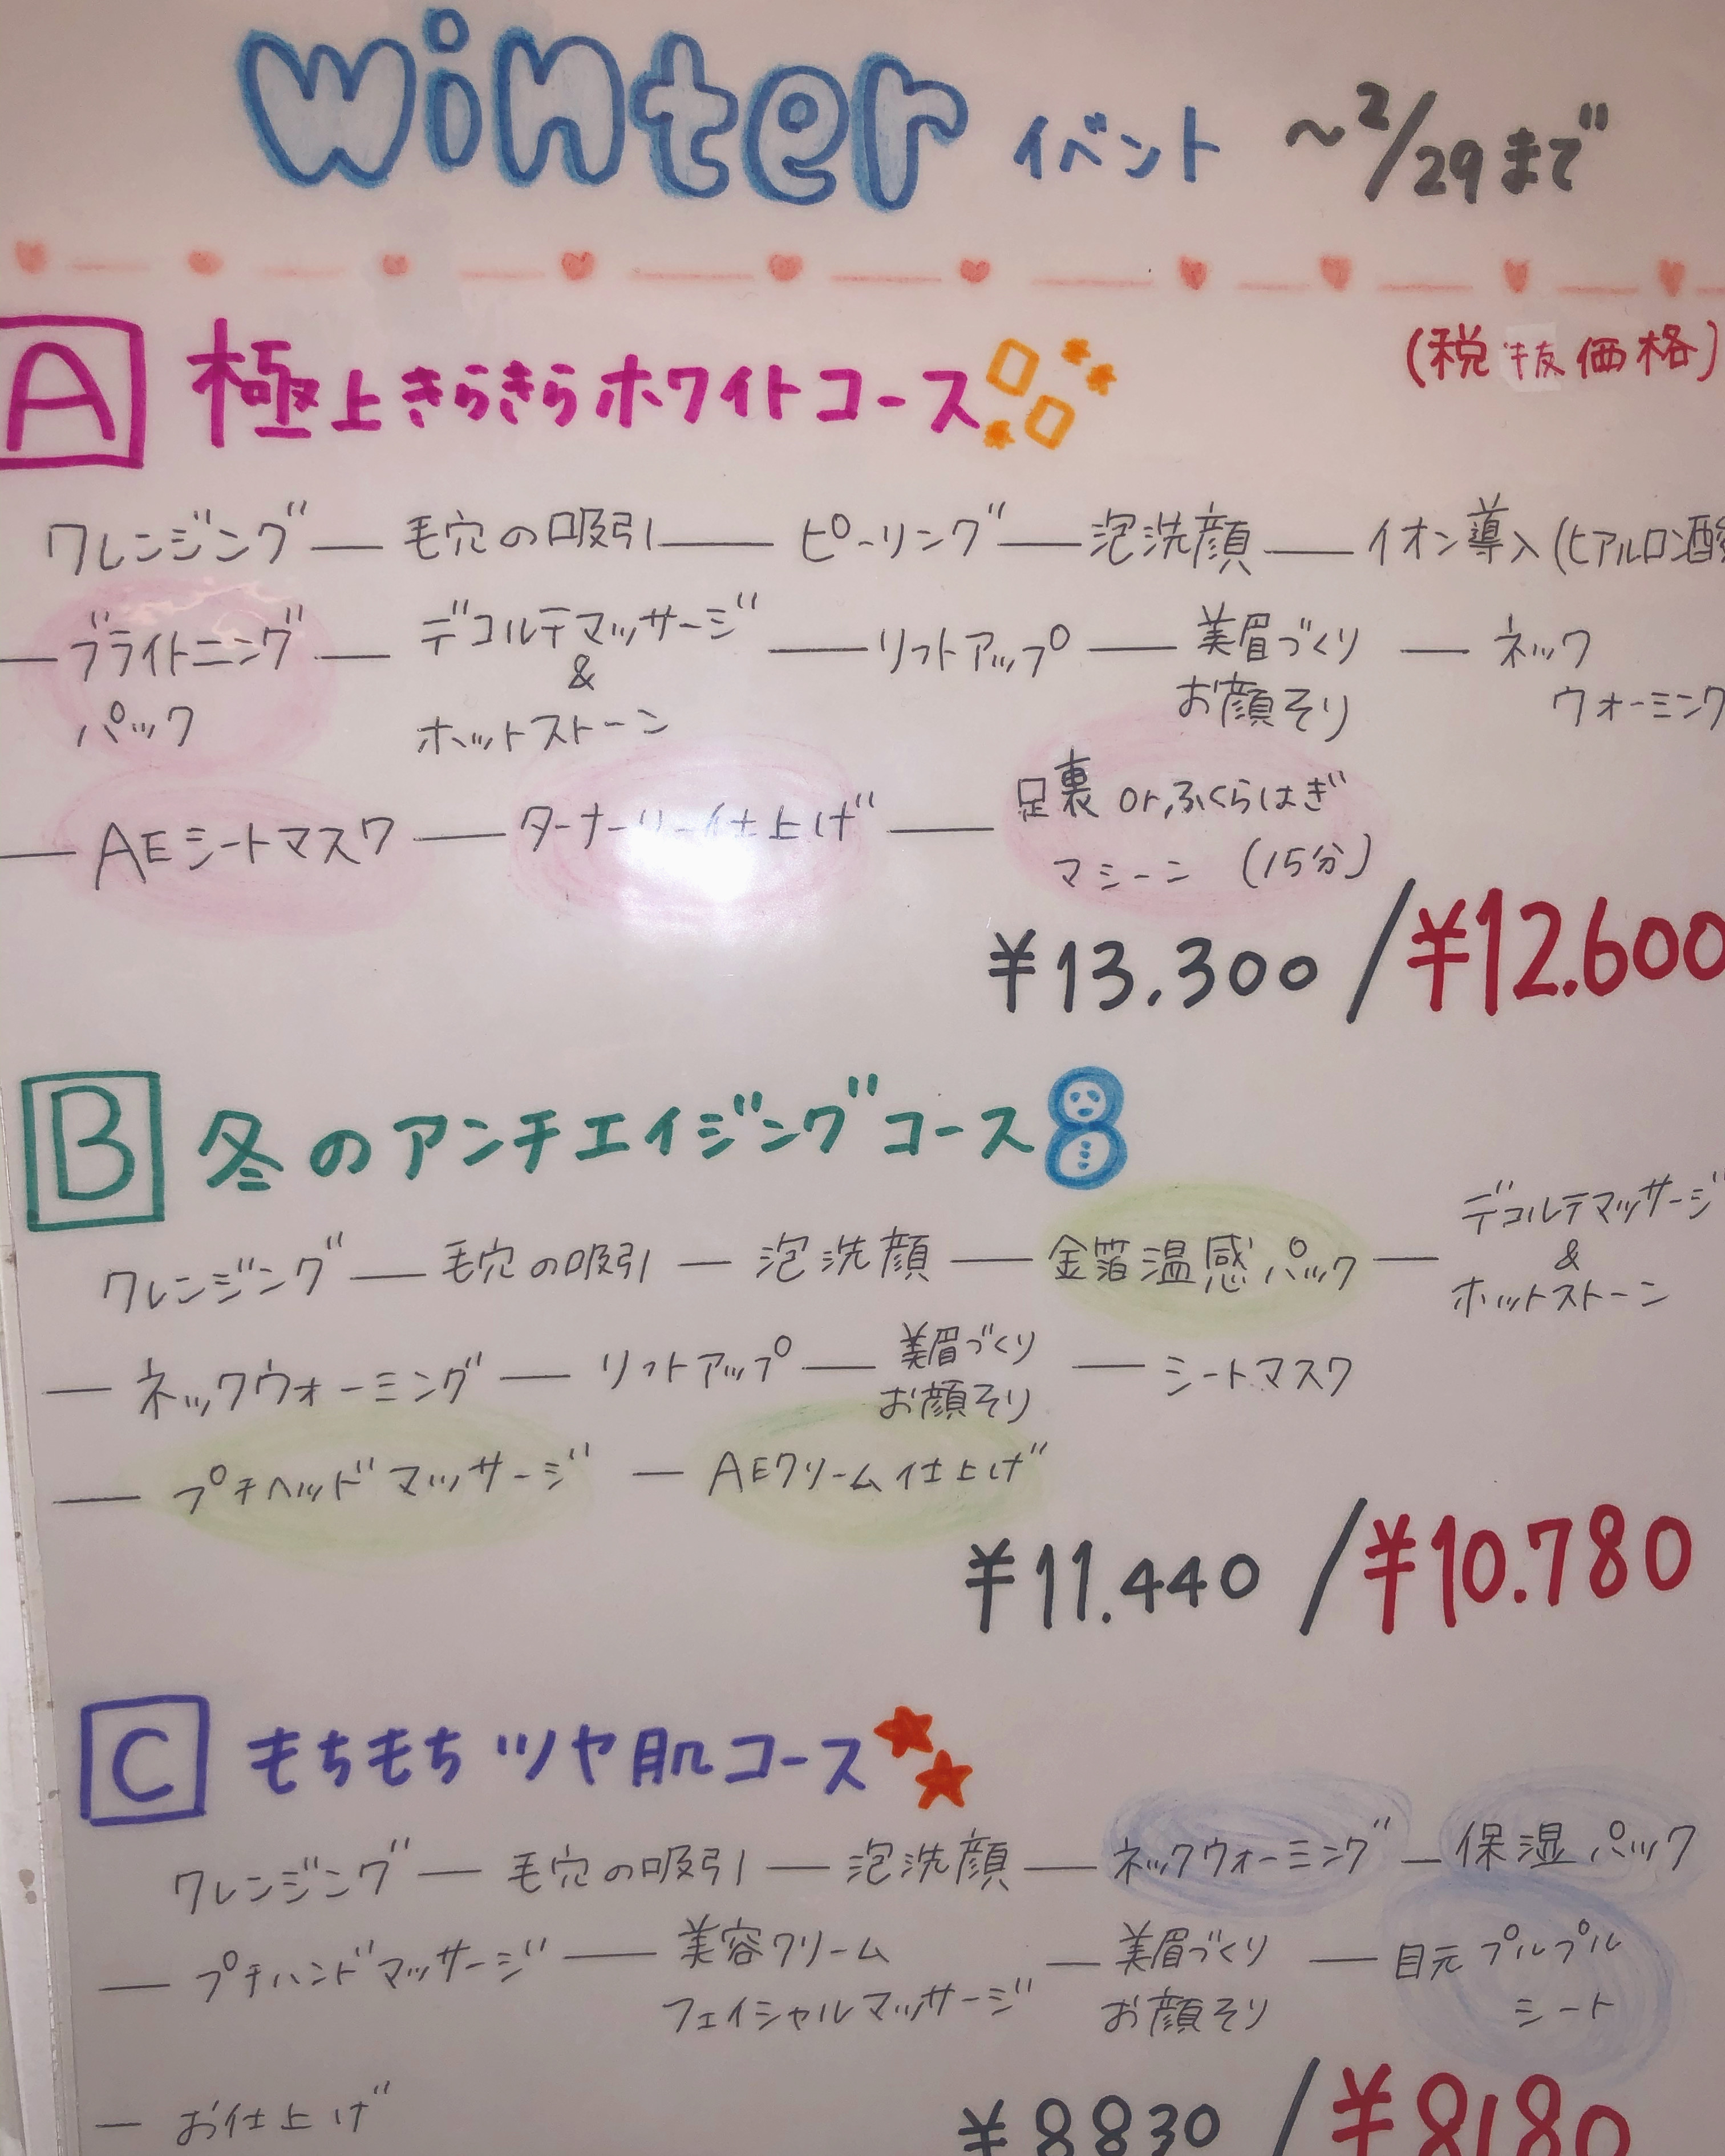 winter イベント ~2/29まで
(税抜価格)
A 極上きらきらホワイトコース
クレンジング — 毛穴の吸引 — ピーリング — 泡洗顔 — イオン導入(ヒアルロン酸
— ブライトニング — デコルテマッサージ — リフトアップ — 美眉づくり — ネック
パック & ホットストーン お顔そり ウォーミング
— AEシートマスク — ターナーリー仕上げ — 足裏 or ふくらはぎ
マシーン (15分)
¥13,300 / ¥12.600
B 冬のアンチエイジングコース
クレンジング — 毛穴の吸引 — 泡洗顔 — 金箔温感パック — デコルテマッサージ
&
ホットストーン
— ネックウォーミング — リフトアップ — 美眉づくり — シートマスク
お顔そり
— プチヘッドマッサージ — AEクリーム仕上げ
¥11.440 / ¥10.780
C もちもちツヤ肌コース
クレンジング — 毛穴の吸引 — 泡洗顔 — ネックウォーミング — 保湿パック
— プチハンドマッサージ — 美容クリーム — 美眉づくり — 目元プルプル
フェイシャルマッサージ お顔そり シート
— お仕上げ
¥8830 / ¥8180